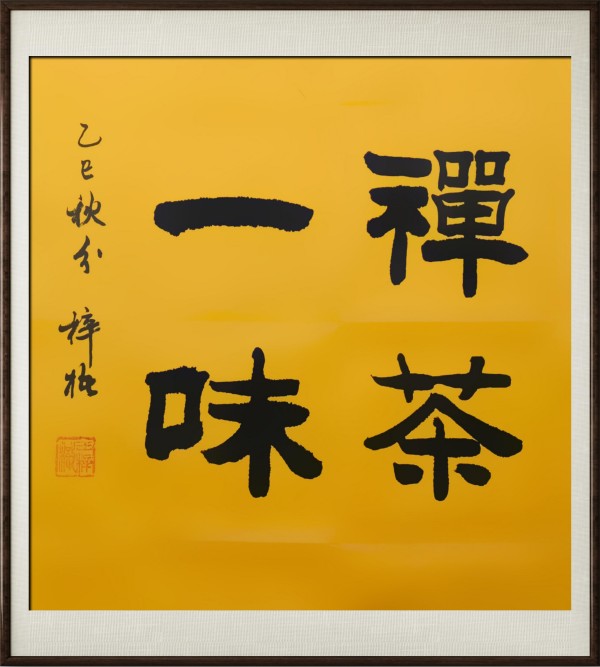 禪茶
一味
乙巳秋分 梓